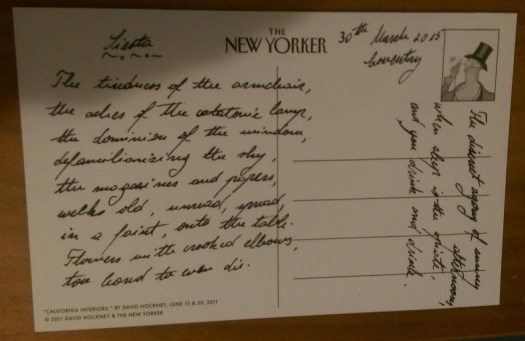 Siesta
The tiredness of the armchair,
the ashes of the catatonic lamp,
the dominion of the window,
defamiliarizing the sky,
the magazines and papers,
weeks old, unread, spread,
in a faint, onto the table.
Flowers with crooked elbows,
too bored to even die.
"CALIFORNIA INTERIORS," BY DAVID HOCKNEY, JUNE 13 & 20, 2011
© 2011 DAVID HOCKNEY & THE NEW YORKER
THE
NEW YORKER
30th March 2015
Coventry
The discreet agony of sunny afternoons,
when sleep is the opiate,
and you drink and drink.